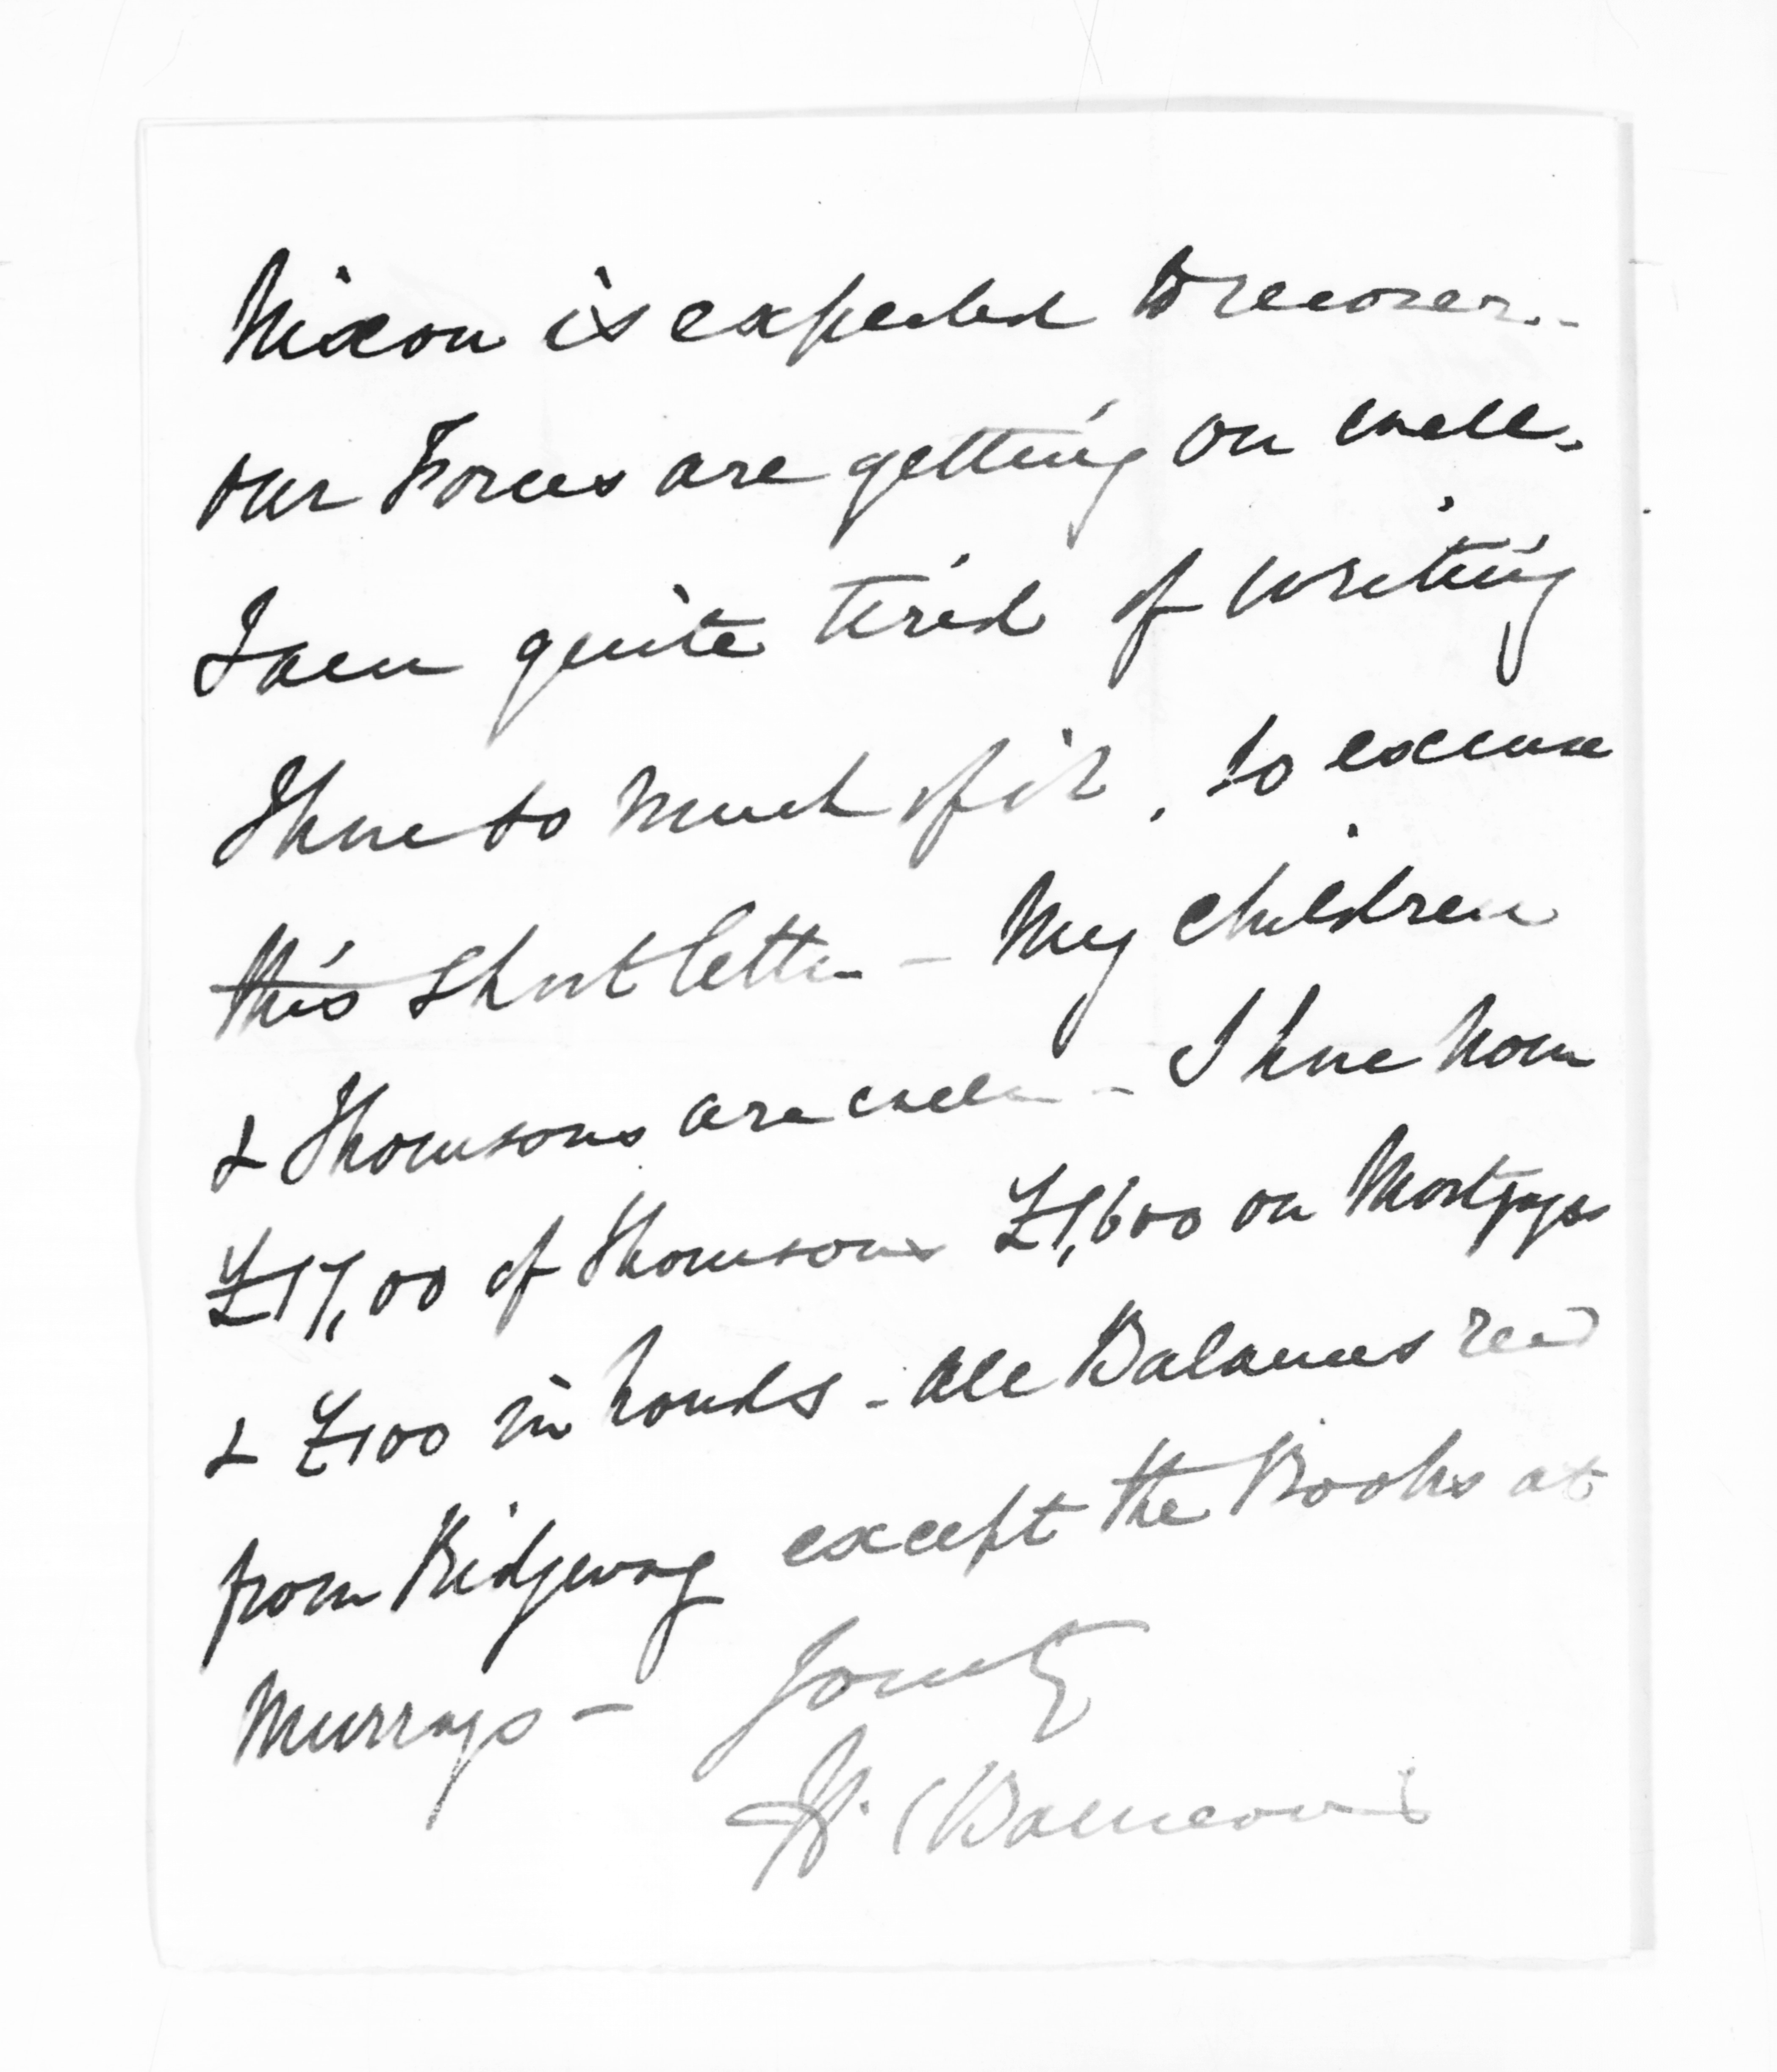 Nixon is expected to recover -
our Forces are getting on well.
I am quite tired of writing
I have so much of it, so excuse
this short letter - My children
& Thomsons are well - I have now
£17,00 of Thomsons £1,600 on Mortgage
& £100 in hands - All Balances recd
from Ridgway except the Books at
Murrays -